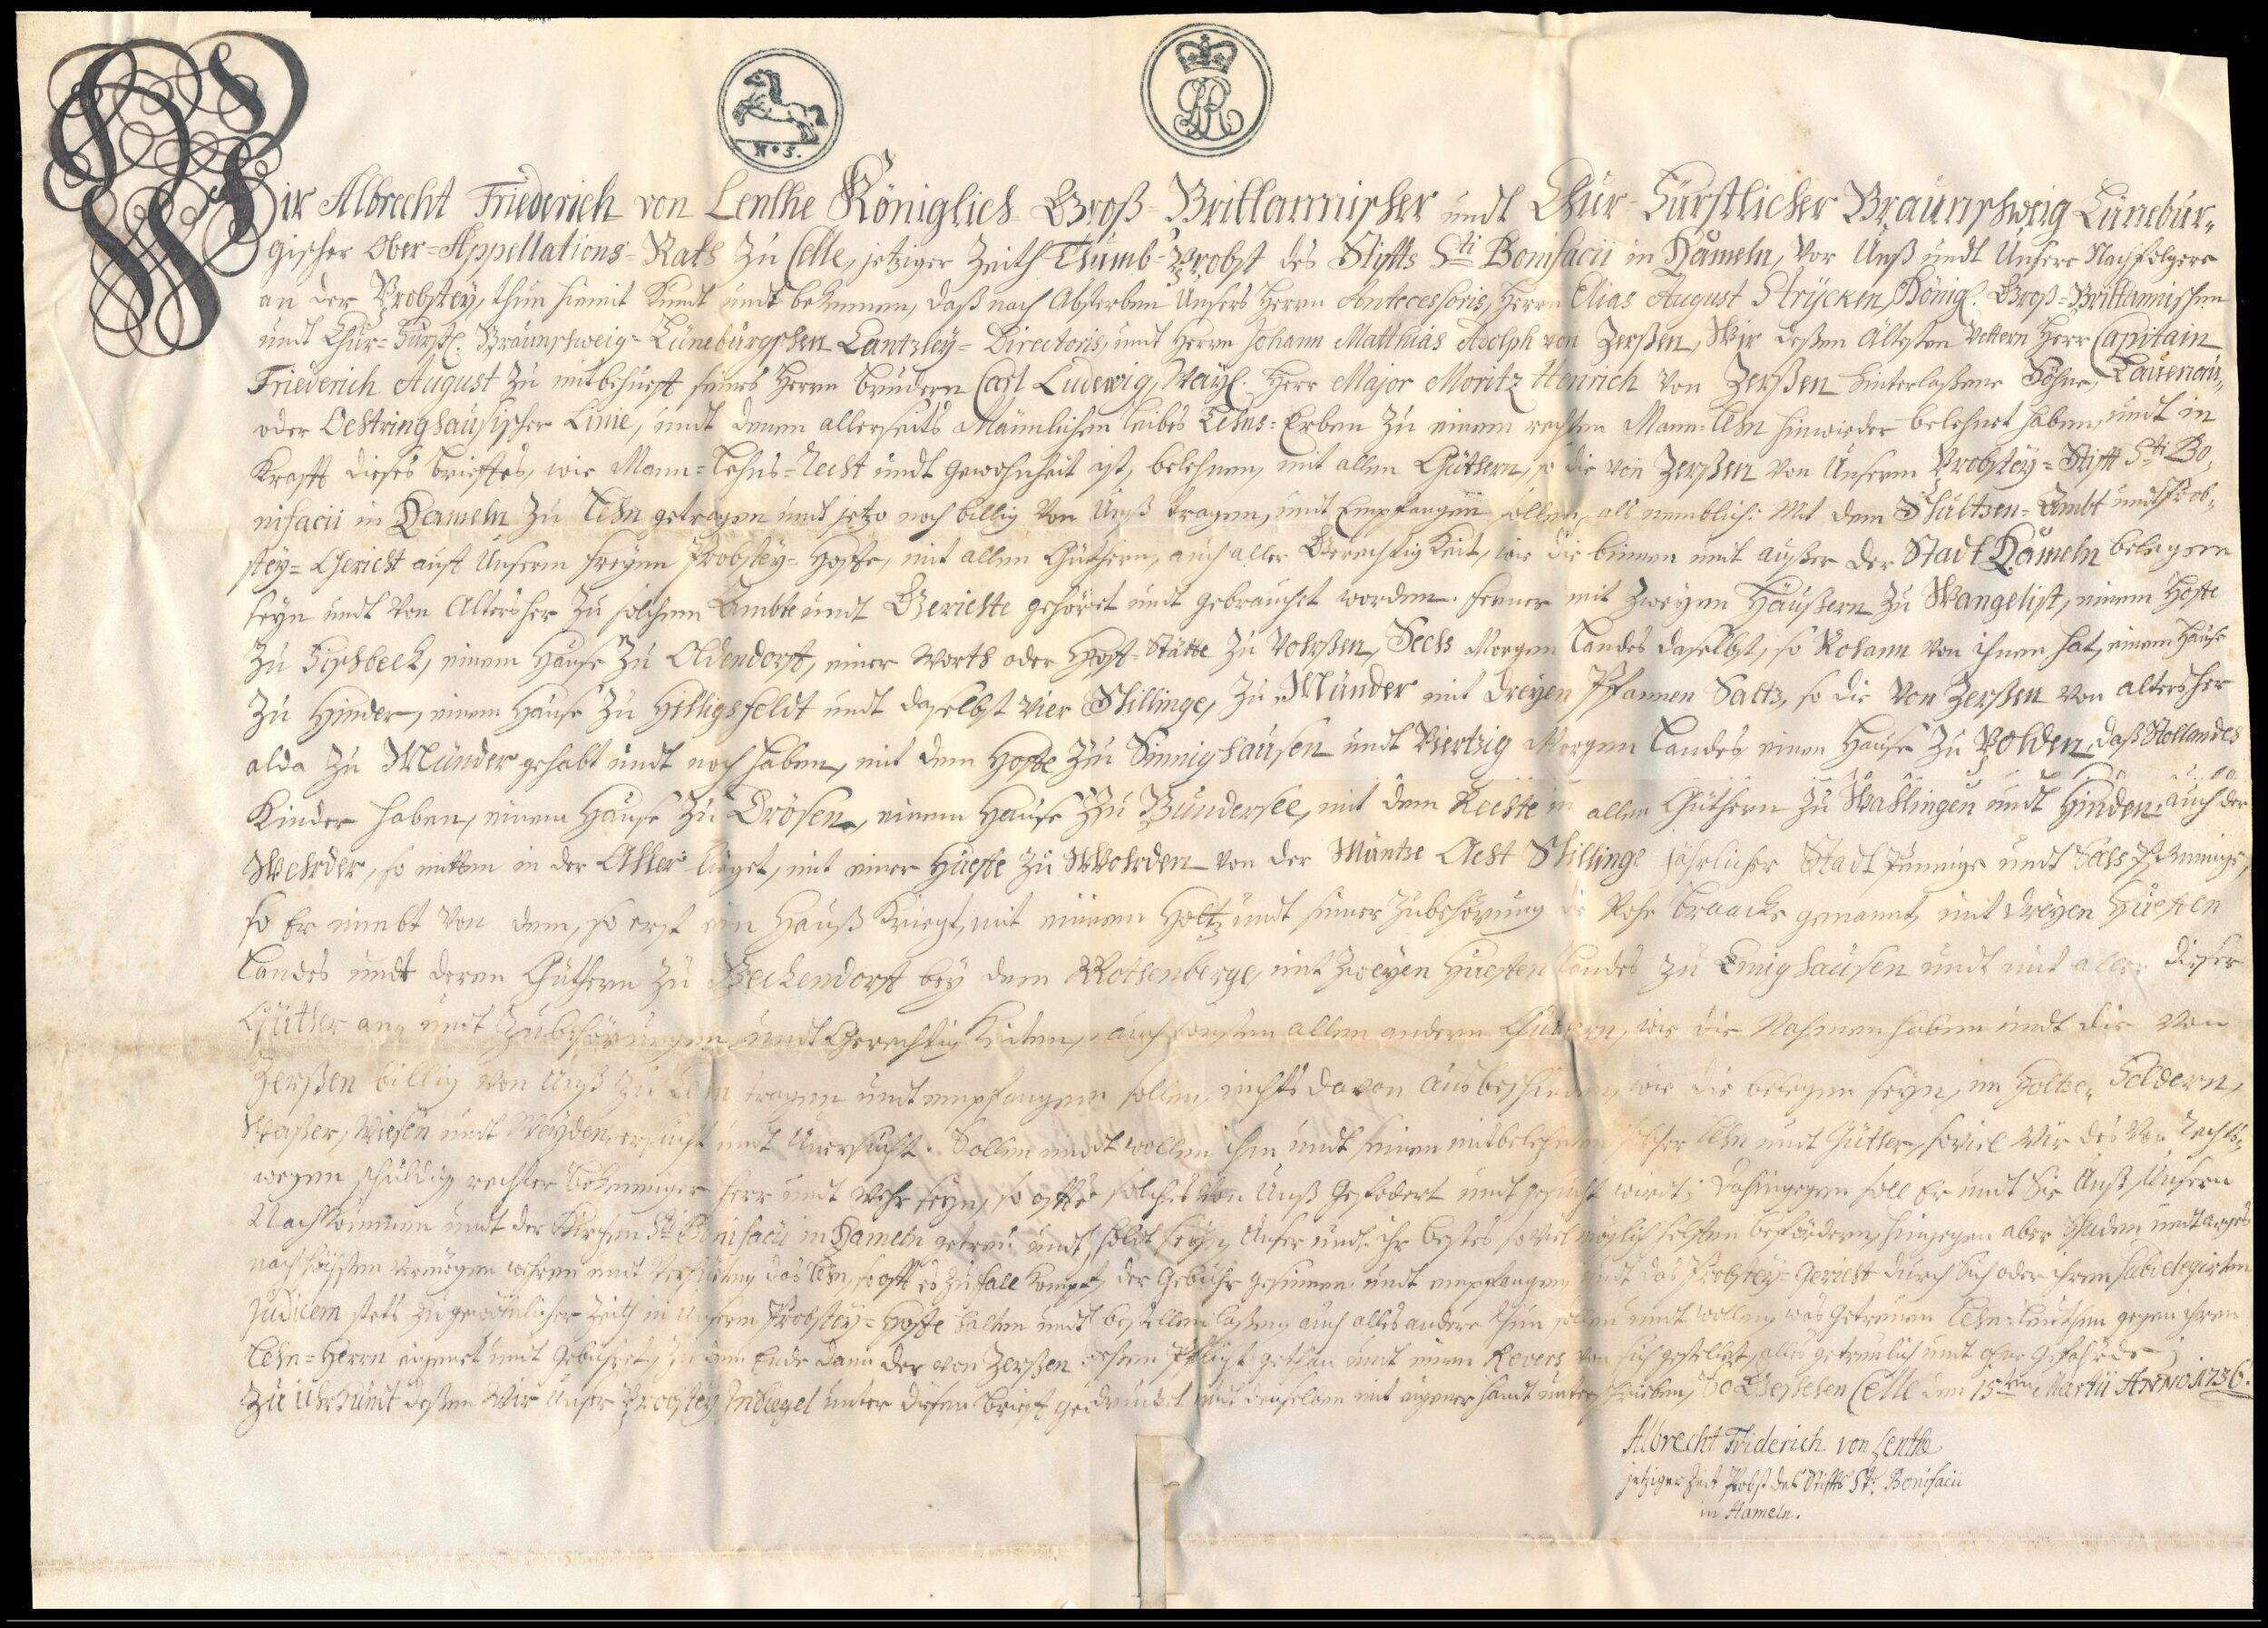 N° 5.
GR
Wir Albrecht Friederich von Lenthe Königlich Groß-Brittannischer undt Chur-Fürstlicher Braunschweig Lünebur-
gischer Ober-Appellations-Rath zu Celle, jetziger Zeith Thumb-Probst des Stiffts Sti Bonifacii in Hameln, vor Unß undt Unsere Nachfolgere
an der Probstey, thun hiemit Kundt undt bekennen, daß nach Absterben Unsers Herrn Antecessoris, Herrn Elias August Strycken, Königl. Groß-Brittannischen
undt Chur-Fürstl. Braunschweig-Lüneburgschen Cantzley-Directoris, undt Herrn Johann Matthias Adolph von Zerßen, Wir deßen Ältesten Vettern Herr Capitain
Friederich August zu mitbehueff seines Herrn Brudern Carl Ludewig, Wayl. Herr Major Moritz Henrich von Zerßen hinterlaßene Söhne, Lauenau-
oder Oestringhausischer Linie, undt denen allerseits Männlichen Leibes Lehns-Erben zu einem rechten Mann-Lehn hinwieder belehnet haben, undt in
Krafft dieses Brieffes, wie Mann-Lehns-Recht undt Gewohnheit ist, belehnen, mit allen Güthern, so die von Zerßen von Unserm Probstey-Stifft Sti Bo-
nifacii in Hameln zu Lehn getragen undt jetzo noch billig von Unß tragen, undt Empfangen sollen, als nemblich: Mit dem Schultzen-Ambt undt Prob-
stey-Gericht auff Unserm freyen Probstey-Hoffe, mit allen Güthern, auch aller Gerechtigkeit, wie die binnen undt außer der Stadt Hameln belegen
seyn undt von Alters her zu solchem Ambte undt Gerichte gehöret undt gebrauchet worden. Ferner mit zweyen Häußern zu Wangelist, einem Hoffe
zu Fischbeck, einem Hause zu Oldendorff, einer Worth oder Hoff-Stätte zu Vohrßen, Sechs Morgen Landes daselbst, so Rohann von ihnen hat, einem Hause
zu Hinder, einem Hause zu Hilligsfeldt undt daselbst vier Schillinge, zu Münder mit dreyen Pfannen Saltz, so die von Zerßen von alters her
alda zu Münder gehabt undt noch haben, mit dem Hoffe zu Sinnighausen undt Viertzig Morgen Landes einen Hause zu Polden, daß Stollandes
Kinder haben, einem Hause zu Drösen, einem Hause zu Bundersee, mit dem Rechte in allen Güthern zu Wahlingen undt Hinden, auch der
Wehrder, so mitten in der Aller lieget, mit einer Hueffe zu Wohrden von der Müntze Acht Schillinge jährlicher Stadt Pfennige undt Pfenninge,
so Er nimbt von dem, so erst ein Hauß Kriegt, mit einem Holtz undt seiner Zubehörung die Rohe Braacke genannt, mit dreyen Hueffen
Landes undt deren Güthern zu Beckendorff bey dem Rothenberge, mit zweyen Hueffen Landes zu Emighausen undt mit allen dieser
Güther an- undt Zubehörungen undt Gerechtigkeiten, auch sonsten allen andern Güthern, wie die Nahmen haben undt die von
Zerßen billig von Unß zu Lehn tragen undt empfangen sollen, nichts davon ausbeschieden, wie die belegen seyn, im Holtze, Feldern,
Waßer, Wiesen undt Weyden, ersucht undt Unersucht. Sollen undt wollen ihm undt seinen mitbelehnten solcher Lehn undt Güther, soviel Wir des von Rechts-
wegen schuldig rechter Bekenniger Herr undt Wehr seyn, so offte solches von Unß Gefodert undt gesucht wirdt; dahingegen soll Er undt Sie Unß, Unsern
Nachkommen undt der Kirchen Sti Bonifacii in Hameln getreu undt holdt seyn, Unser undt ihr bestes so viel möglich helffen befördern, hingegen aber Schaden undt arges
nach höchsten Vermögen wehren undt das Lehn, so offt es zu Fall Kompt, der Gebühr gesinnen undt empfangen, undt das Probstey-Gericht durch Sich oder ihren Subdelegirten
Judicem stets zu gewöhnlicher Zeith in Unserm Probstey-Hoffe halten undt bestellen laßen, auch alles andere thun sollen undt wollen, was Getreuen Lehn-Leuthen gegen ihren
Lehn-Herrn eignet undt Gebühret, zu dem Ende dann der von Zerßen deßen Pflicht gethan undt einen Revers von sich gestellet, alles getreulich undt ohne Gefährde;
Zu Uhrkundt deßen Wir Unser Probstey Insiegel unter diesen Brieff gedrucket undt denselben mit eigener Handt unterschrieben, So Geschehen Celle den 15ten Martii ANNO 1736.
Albrecht Friderich von Lenthe
jetziger Zeit Probst des Stiffts St. Bonifacii
in Hameln.